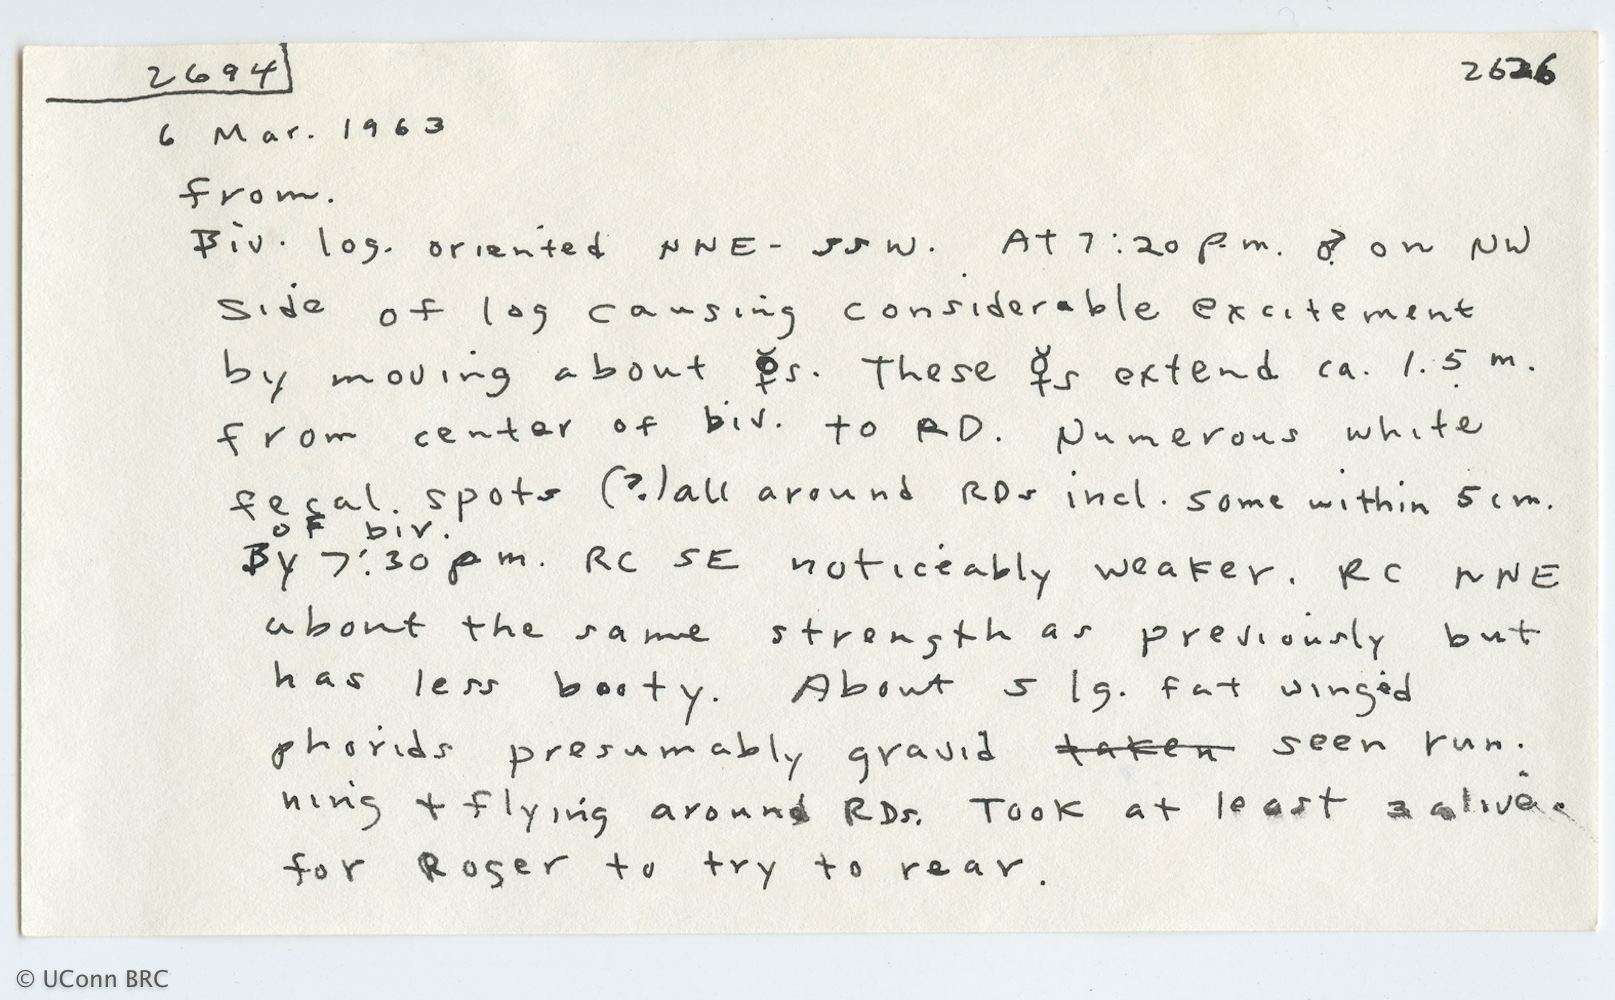 2694
2626
6 Mar. 1963
from.
Biv. log. oriented NNE-SSW. At 7:20 p.m. ♂ on NW
side of log causing considerable excitement
by moving about ☿s. These ☿s extend ca. 1.5 m.
from center of biv. to RD. Numerous white
fecal. spots (?) all around RDs incl. some within 5 cm.
of biv.
By 7:30 pm. RC SE noticeably weaker. RC NNE
about the same strength as previously but
has less booty. About 5 lg. fat winged
phorids presumably gravid taken seen run-
ning + flying around RDs. Took at least 3 alive
for Roger to try to rear.
© UConn BRC